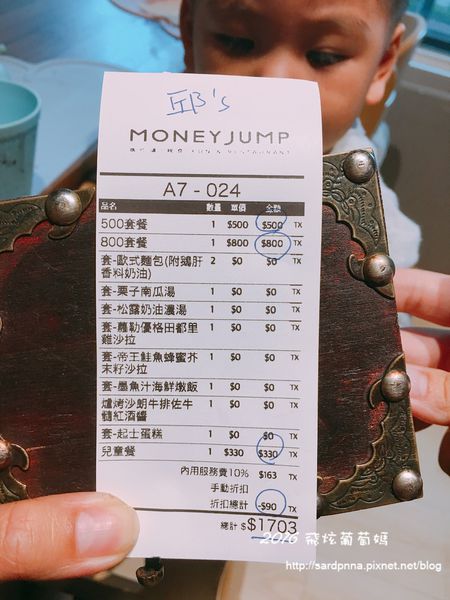 邱's
MONEYJUMP
A7 - 024
品名 數量 單價 金額
500套餐 1 $500 $500 TX
800套餐 1 $800 $800 TX
套-歐式麵包(附鵝肝 2 $0 $0 TX
香料奶油)
套-栗子南瓜湯 1 $0 $0 TX
套-松露奶油濃湯 1 $0 $0 TX
套-蘿勒優格田都里 1 $0 $0 TX
雞沙拉
套-帝王鮭魚蜂蜜芥 1 $0 $0 TX
末籽沙拉
套-墨魚汁海鮮燉飯 1 $0 $0 TX
爐烤沙朗牛排佐牛 1 $0 $0 TX
髓紅酒醬
套-起士蛋糕 1 $0 $0 TX
兒童餐 1 $330 $330 TX
內用服務費10% $163 TX
手動折扣
折扣總計 -$90 TX
總計 $ $1703
2016 飛炫葡萄媽
http://sardpnna.pixnet.net/blog